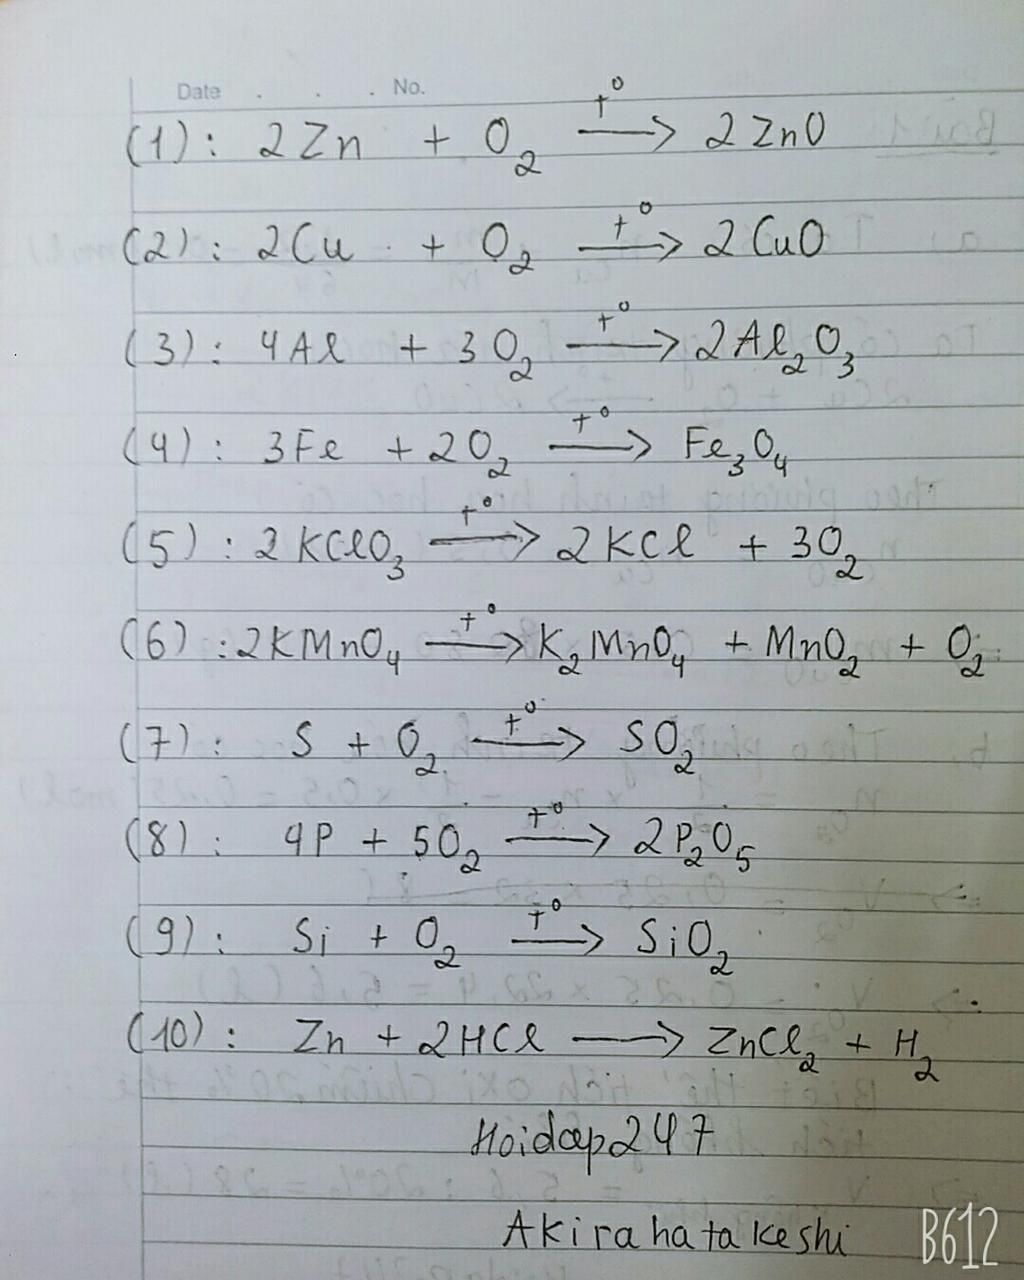 Date . . . No.
(1): 2Zn + O₂ —t°→ 2ZnO
(2): 2Cu + O₂ —t°→ 2CuO
(3): 4Al + 3O₂ —t°→ 2Al₂O₃
(4): 3Fe + 2O₂ —t°→ Fe₃O₄
(5): 2KClO₃ —t°→ 2KCl + 3O₂
(6): 2KMnO₄ —t°→ K₂MnO₄ + MnO₂ + O₂
(7): S + O₂ —t°→ SO₂
(8): 4P + 5O₂ —t°→ 2P₂O₅
(9): Si + O₂ —t°→ SiO₂
(10): Zn + 2HCl ⟶ ZnCl₂ + H₂
Hoidap247
Akirahatakeshi
B612